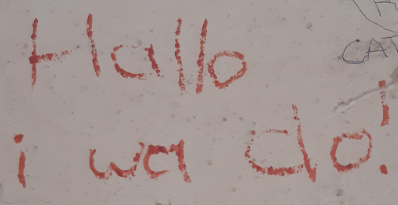 Hallo
i wa do!
CAT